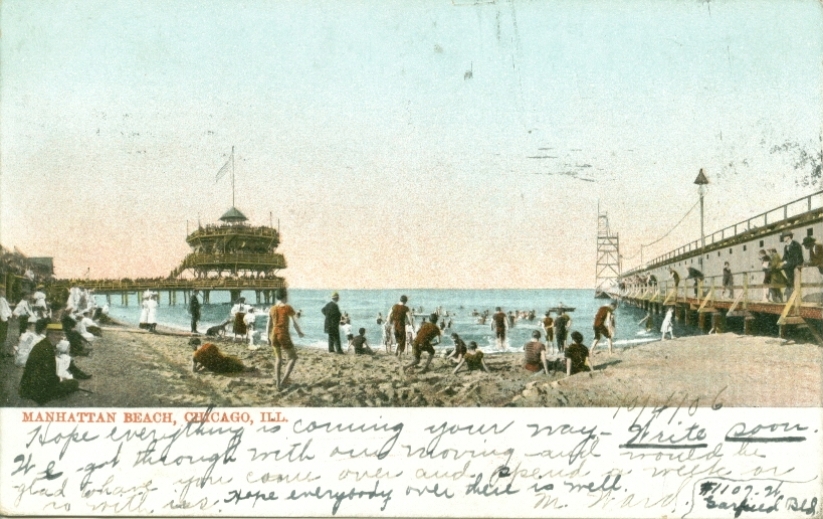 MANHATTAN BEACH, CHICAGO, ILL.
10/4/06
Hope everything is coming your way - Write soon.
We got through with our moving and would be
glad have you come over and spend a week or
so with us. Hope everybody over there is well.
M. Ward.
#1107-W.
Garfield Bld.